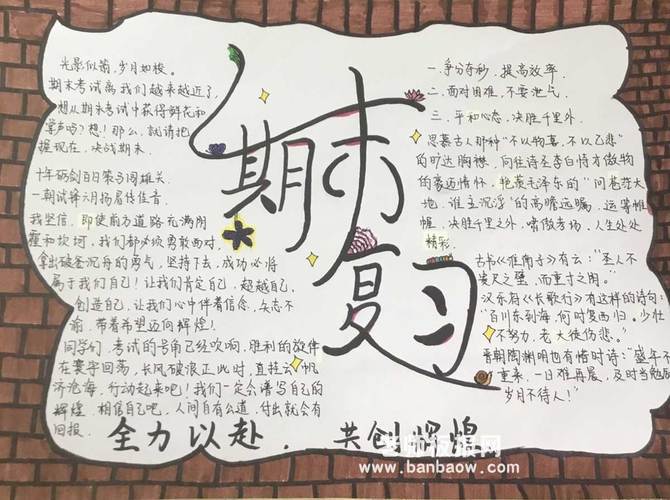 期末
复习
光影似箭,岁月如梭。
期末考试离我们越来越近了,
想从期末考试中获得鲜花和
掌声吗?想!那么,就请把
握现在,决战期末.
十年砺剑百日策马闯雄关
一朝试锋六月扬眉传佳音.
我坚信,即使前方道路充满阴
霾和坎坷,我们都必须勇敢面对,
拿出破釜沉舟的勇气,坚持下去,成功必将
属于我们自己!让我们肯定自己,超越自己,
创造自己,让我们心中伴着信念,矢志不
渝,带着希望迈向辉煌!
同学们,考试的号角已经吹响,胜利的歌伴
在寰宇回荡,长风破浪正此时,直挂云帆
济沧海,行动起来吧!我们一定会谱写自己的
辉煌,相信自己吧,人间自有公道,付出就会有
回报.
一.争分夺秒,提高效率.
二.面对困难,不要泄气.
三.平和心态,决胜千里外.
思慕古人那种“不以物喜,不以己悲”
的旷达胸襟,向往诗圣李白恃才傲物
的豪迈情怀,艳慕毛泽东的“问苍茫大
地,谁主沉浮”的高瞻远瞩,运筹帷
幄,决胜千里之外,啸傲考场,人生处处
精彩.
古书《淮南子》有云:“圣人不
贵尺之璧,而重寸之阴。”
汉乐府《长歌行》有这样的诗句:
“百川东到海,何时复西归。少壮
不努力,老大徒伤悲。”
晋朝陶渊明也有惜时诗:“盛年不
重来,一日难再晨,及时当勉励
岁月不待人!”
全力以赴.共创辉煌
老师板报网
www.banbaow.com